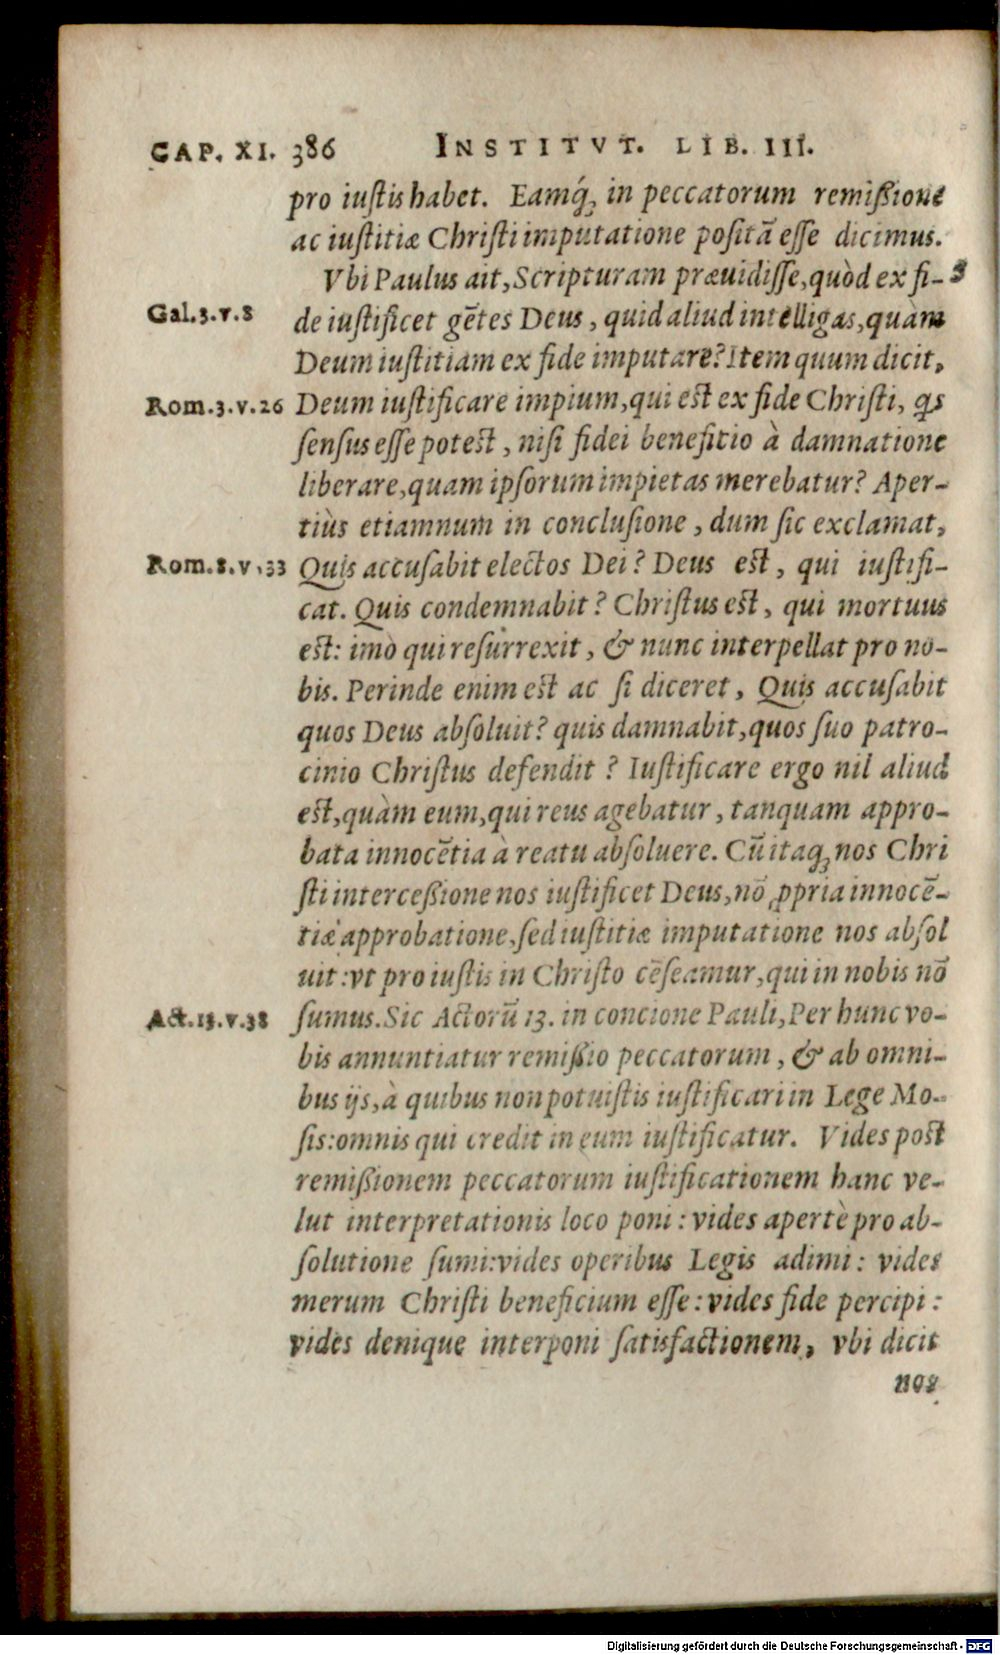 CAP. XI. 386 INSTITVT. LIB. III.
pro iustis habet. Eamq́; in peccatorum remißione
ac iustitiæ Christi imputatione positā esse dicimus.
Vbi Paulus ait, Scripturam præuidisse, quòd ex fi- 3
Gal.3.v.8 de iustificet gētes Deus, quid aliud intelligas, quàm
Deum iustitiam ex fide imputare? Item quum dicit,
Rom.3.v.26 Deum iustificare impium, qui est ex fide Christi, qs
sensus esse potest, nisi fidei beneficio à damnatione
liberare, quam ipsorum impietas merebatur? Aper-
tiùs etiamnum in conclusione, dum sic exclamat,
Rom.8.v.33 Quis accusabit electos Dei? Deus est, qui iustifi-
cat. Quis condemnabit? Christus est, qui mortuus
est: imò qui resurrexit, & nunc interpellat pro no-
bis. Perinde enim est ac si diceret, Quis accusabit
quos Deus absoluit? quis damnabit, quos suo patro-
cinio Christus defendit? Iustificare ergo nil aliud
est, quàm eum, qui reus agebatur, tanquam appro-
bata innocētia à reatu absoluere. Cū itaq; nos Chri
sti interceßione nos iustificet Deus, nō ꝓpria innocē-
tiæ approbatione, sed iustitiæ imputatione nos absol
uit: vt pro iustis in Christo cēseamur, qui in nobis nō
Act.13.v.38 sumus. Sic Actorū 13. in concione Pauli, Per hunc vo-
bis annuntiatur remißio peccatorum, & ab omni-
bus ijs, à quibus non potuistis iustificari in Lege Mo-
sis: omnis qui credit in eum iustificatur. Vides post
remißionem peccatorum iustificationem hanc ve-
lut interpretationis loco poni: vides apertè pro ab-
solutione sumi: vides operibus Legis adimi: vides
merum Christi beneficium esse: vides fide percipi:
vides denique interponi satisfactionem, vbi dicit
nos
Digitalisierung gefördert durch die Deutsche Forschungsgemeinschaft - DFG